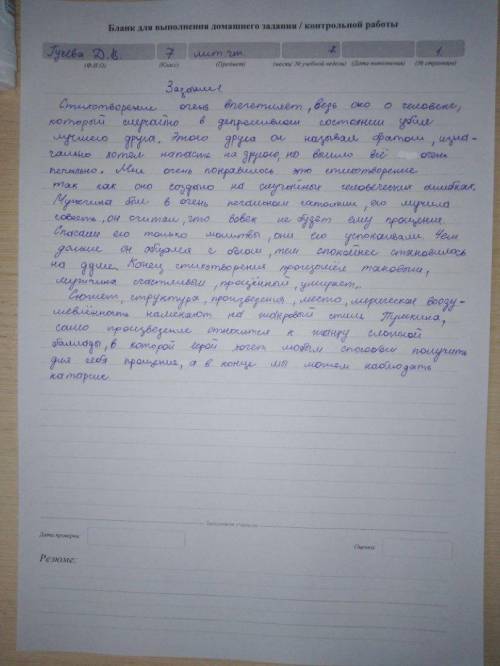 Бланк для выполнения домашнего задания / контрольной работы
Гусева Д.В. 7 лит чт. 1.
(Ф.И.О) (Класс) (Предмет) (месяц/ № учебной недели) (Дата выполнения) (№ страницы)
Задание 1
Стихотворение очень впечатляет, ведь оно о человеке,
который случайно в депрессивном состоянии убил
лучшего друга. Этого друга он называл братом, изна-
чально хотел напасть на другого, но вышло всё очень
печально. Мне очень понравилось это стихотворение
так как оно создано на случайных человеческих ошибках.
Мужчина был в очень печальном состоянии, его мучила
совесть, он считал, что вовек не будет ему прощения.
Спасали его только молитвы, они его успокаивали. Чем
дальше он общался с богом, тем спокойнее становилось
на душе. Конец стихотворения произошёл таковым,
мужчина счастливый, прощённый, умирает.
Сюжет, структура, произведения, место, лирическая вооду-
шевлённость намекают на жанровый стиль Пушкина,
само произведение относится к жанру сложной
баллады, в которой герой хочет любым способом получить
для себя прощение, а в конце мы можем наблюдать
катарсис.
Дата проверки: Оценка:
Резюме: